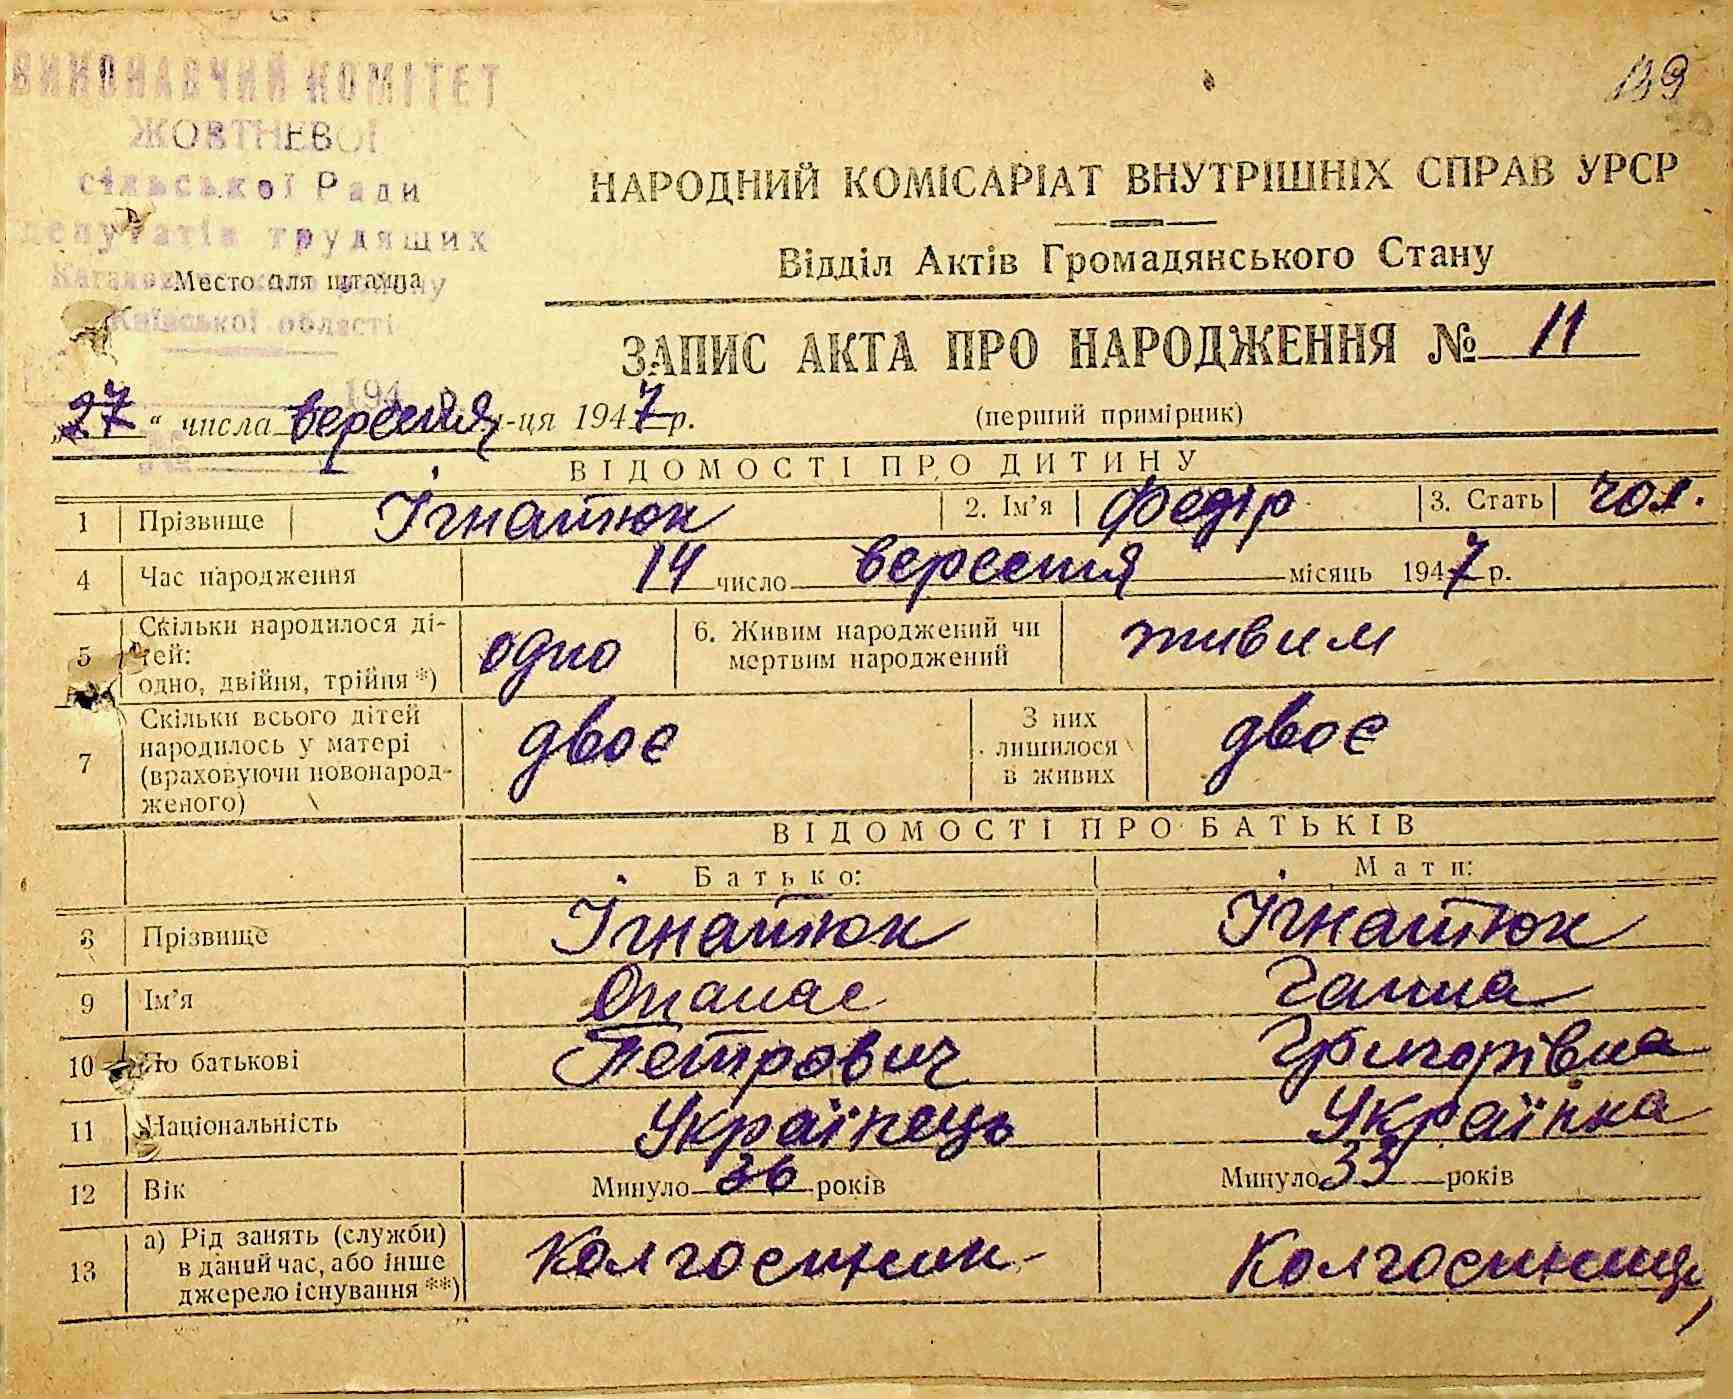 ВИКОНАВЧИЙ КОМІТЕТ
ЖОВТНЕВОЇ
сільської Ради
депутатів трудящих
Место для штампа
Київської області
139
НАРОДНИЙ КОМІСАРІАТ ВНУТРІШНІХ СПРАВ УРСР
Відділ Актів Громадянського Стану
ЗАПИС АКТА ПРО НАРОДЖЕННЯ № 11
(перший примірник)
„27“ числа вересня м-ця 1947 р.
ВІДОМОСТІ ПРО ДИТИНУ
1 Прізвище Ігнатюк 2. Ім'я Федір 3. Стать чол.
4 Час народження 14 число вересня місяць 1947 р.
5 Скільки народилося ді-
тей:
одно, двійня, трійня *) одно 6. Живим народжений чи
мертвим народжений живим
7 Скільки всього дітей
народилось у матері
(враховуючи новонарод-
женого) двоє З них
лишилося
в живих двоє
ВІДОМОСТІ ПРО БАТЬКІВ
Батько: Мати:
8 Прізвище Ігнатюк Ігнатюк
9 Ім'я Опанас Ганна
10 По батькові Петрович Григорівна
11 Національність Українець Українка
12 Вік Минуло 36 років Минуло 33 років
13 а) Рід занять (служби)
в даний час, або інше
джерело існування **) Колгоспник Колгоспниця